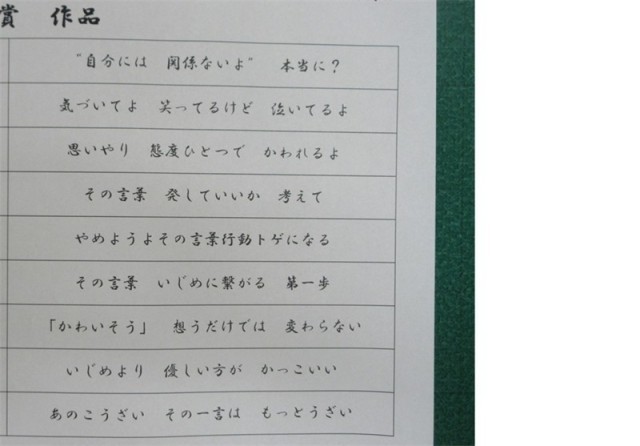 賞　作品
“自分には　関係ないよ”　本当に？
気づいてよ　笑ってるけど　泣いてるよ
思いやり　態度ひとつで　かわれるよ
その言葉　発していいか　考えて
やめようよその言葉行動トゲになる
その言葉　いじめに繋がる　第一歩
「かわいそう」　想うだけでは　変わらない
いじめより　優しい方が　かっこいい
あのこうざい　その一言は　もっとうざい